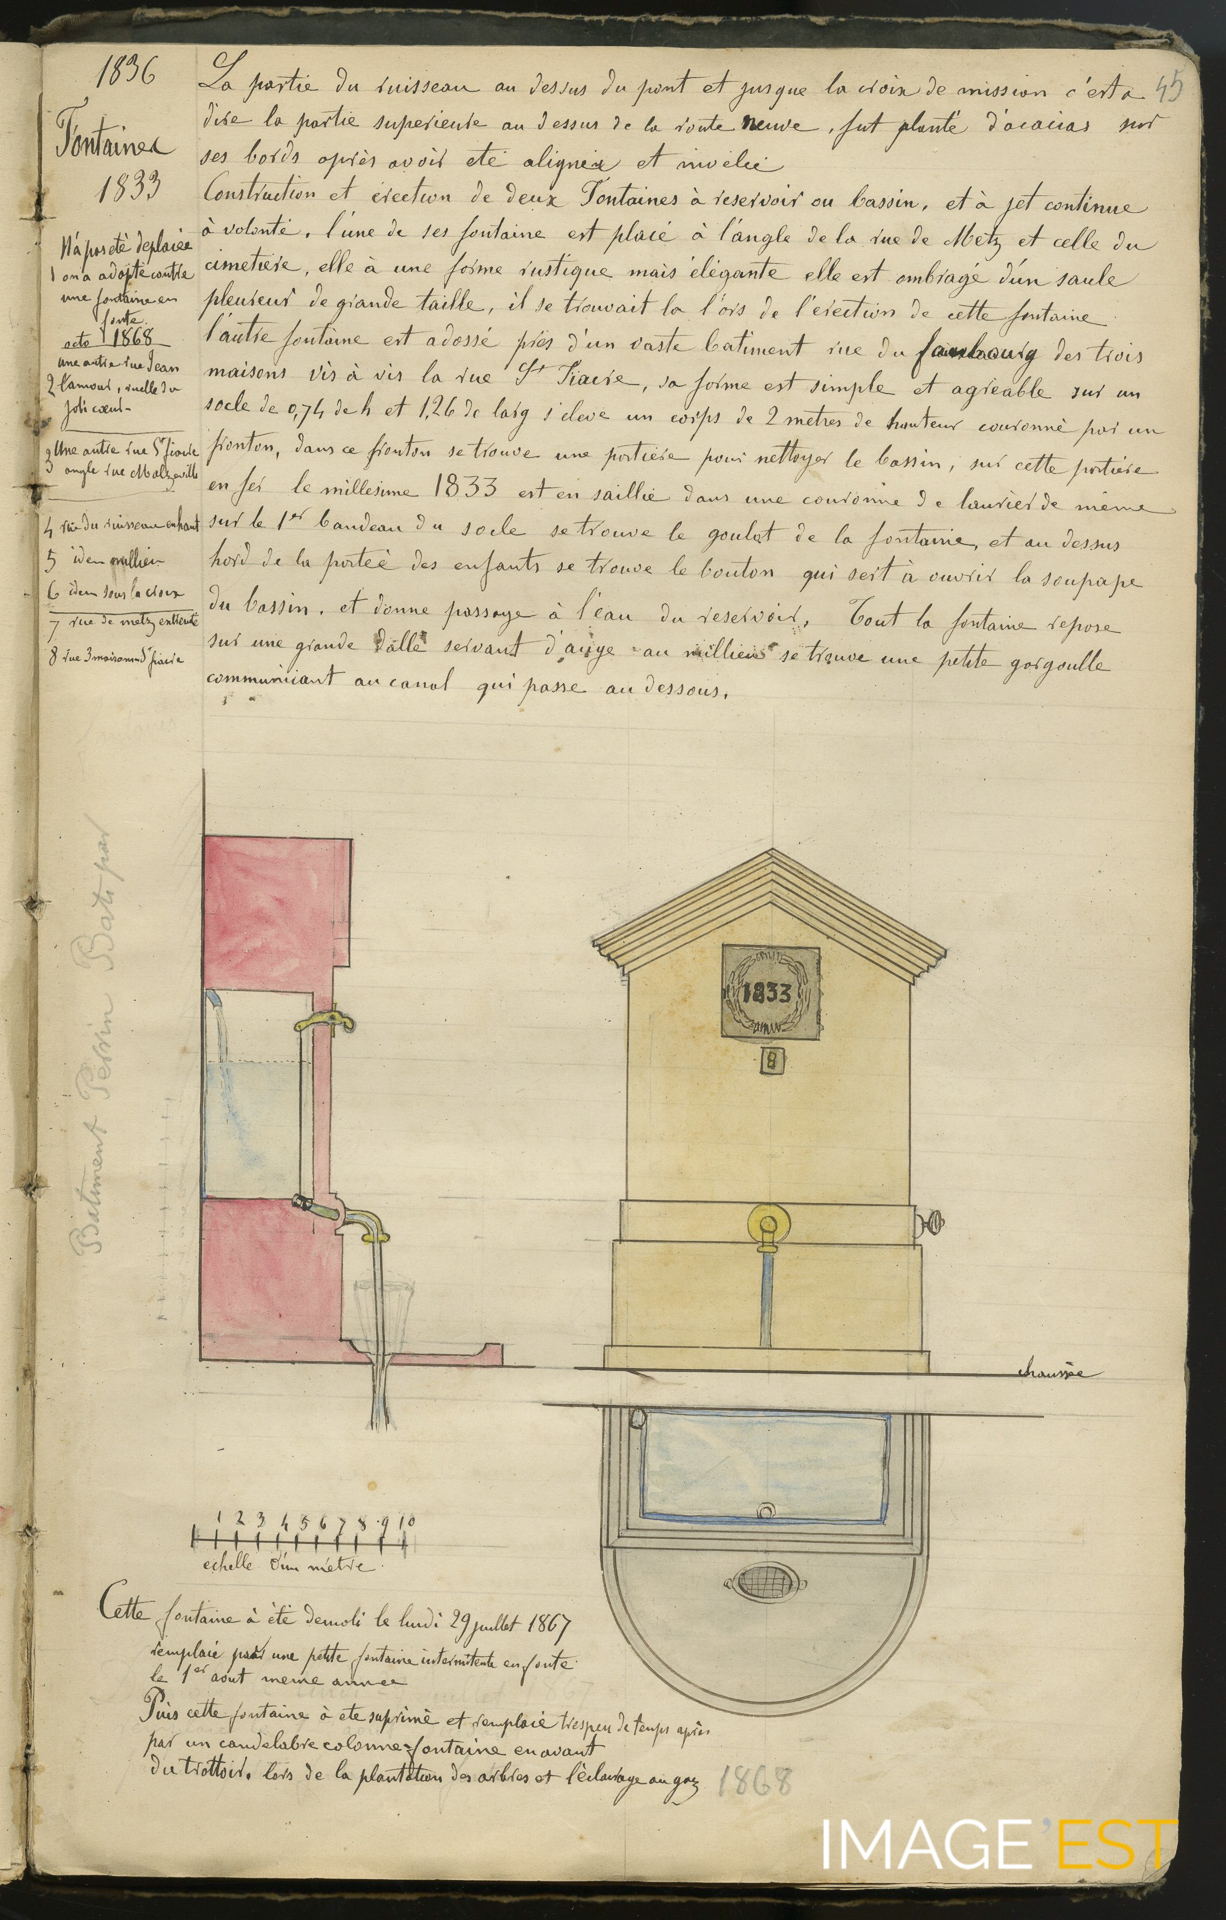 45
1836
La partie du ruisseau au dessus du pont et jusque la croix de mission c'est a
dire la partie superieure au dessus de la route neuve, fut planté d'acacias sur
ses bords après avoir eté alignée et nivelée
Fontaines
1833
Construction et érection de deux Fontaines à reservoir ou bassin, et à jet continue
à volonté, l'une de ses fontaine est placé à l'angle de la rue de Metz et celle du
cimetiere, elle à une forme rustique mais élégante elle est ombragé d'un saule
pleureur de grande taille, il se trouvait la l'ors de l'érection de cette fontaine
l'autre fontaine est adossé près d'un vaste batiment rue du faubourg des trois
maisons vis à vis la rue St Fiacre, sa forme est simple et agréable sur un
socle de 0,74 de h et 1,26 de larg s'éleve un corps de 2 metres de hauteur couronné par un
fronton, dans ce fronton se trouve une portière pour nettoyer le bassin, sur cette portière
en fer le millesime 1833 est en saillie dans une couronne de laurier de même
sur le 1er bandeau du socle se trouve le goulot de la fontaine, et au dessus
hord de la porteé des enfants se trouve le bouton qui sert à ouvrir la soupape
du bassin, et donne passage à l'eau du reservoir, Tout la fontaine repose
sur une grande dalle servant d'auge au millieu se trouve une petite gargoulle
communicant au canal qui passe au dessous.
N'a pas eté deplacée
1 on a adopté contre
une fontaine en
fonte
1868
une autre rue Jean
2 Lamour, ruelle du
joli coeur
3 Une autre rue St fiacre
angle rue Malzeville
4 rue du ruisseau en haut
5 idem millieu
6 idem sous la croix
7 rue de metz
8 rue 3 maisons St fiacre
Batiment Perrin Bati par
1833
8
chaussée
1 2 3 4 5 6 7 8 9 10
echelle d'un métre
Cette fontaine à été demoli le lundi 29 juillet 1867
remplacé par une petite fontaine intermitente en fonte
le 1er aout meme annee
Puis cette fontaine à ete suprimé et remplacé tres peu de temps après
par un candelabre colonne=fontaine en avant
du trottoir, lors de la plantation des arbres et l'éclairage au gaz 1868
IMAGE'EST